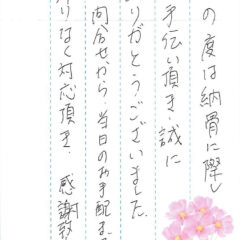 の度は納骨に際し
手伝い頂き誠に
りがとうございました。
問合せから当日のお手配る
りなく対応頂き、感謝致